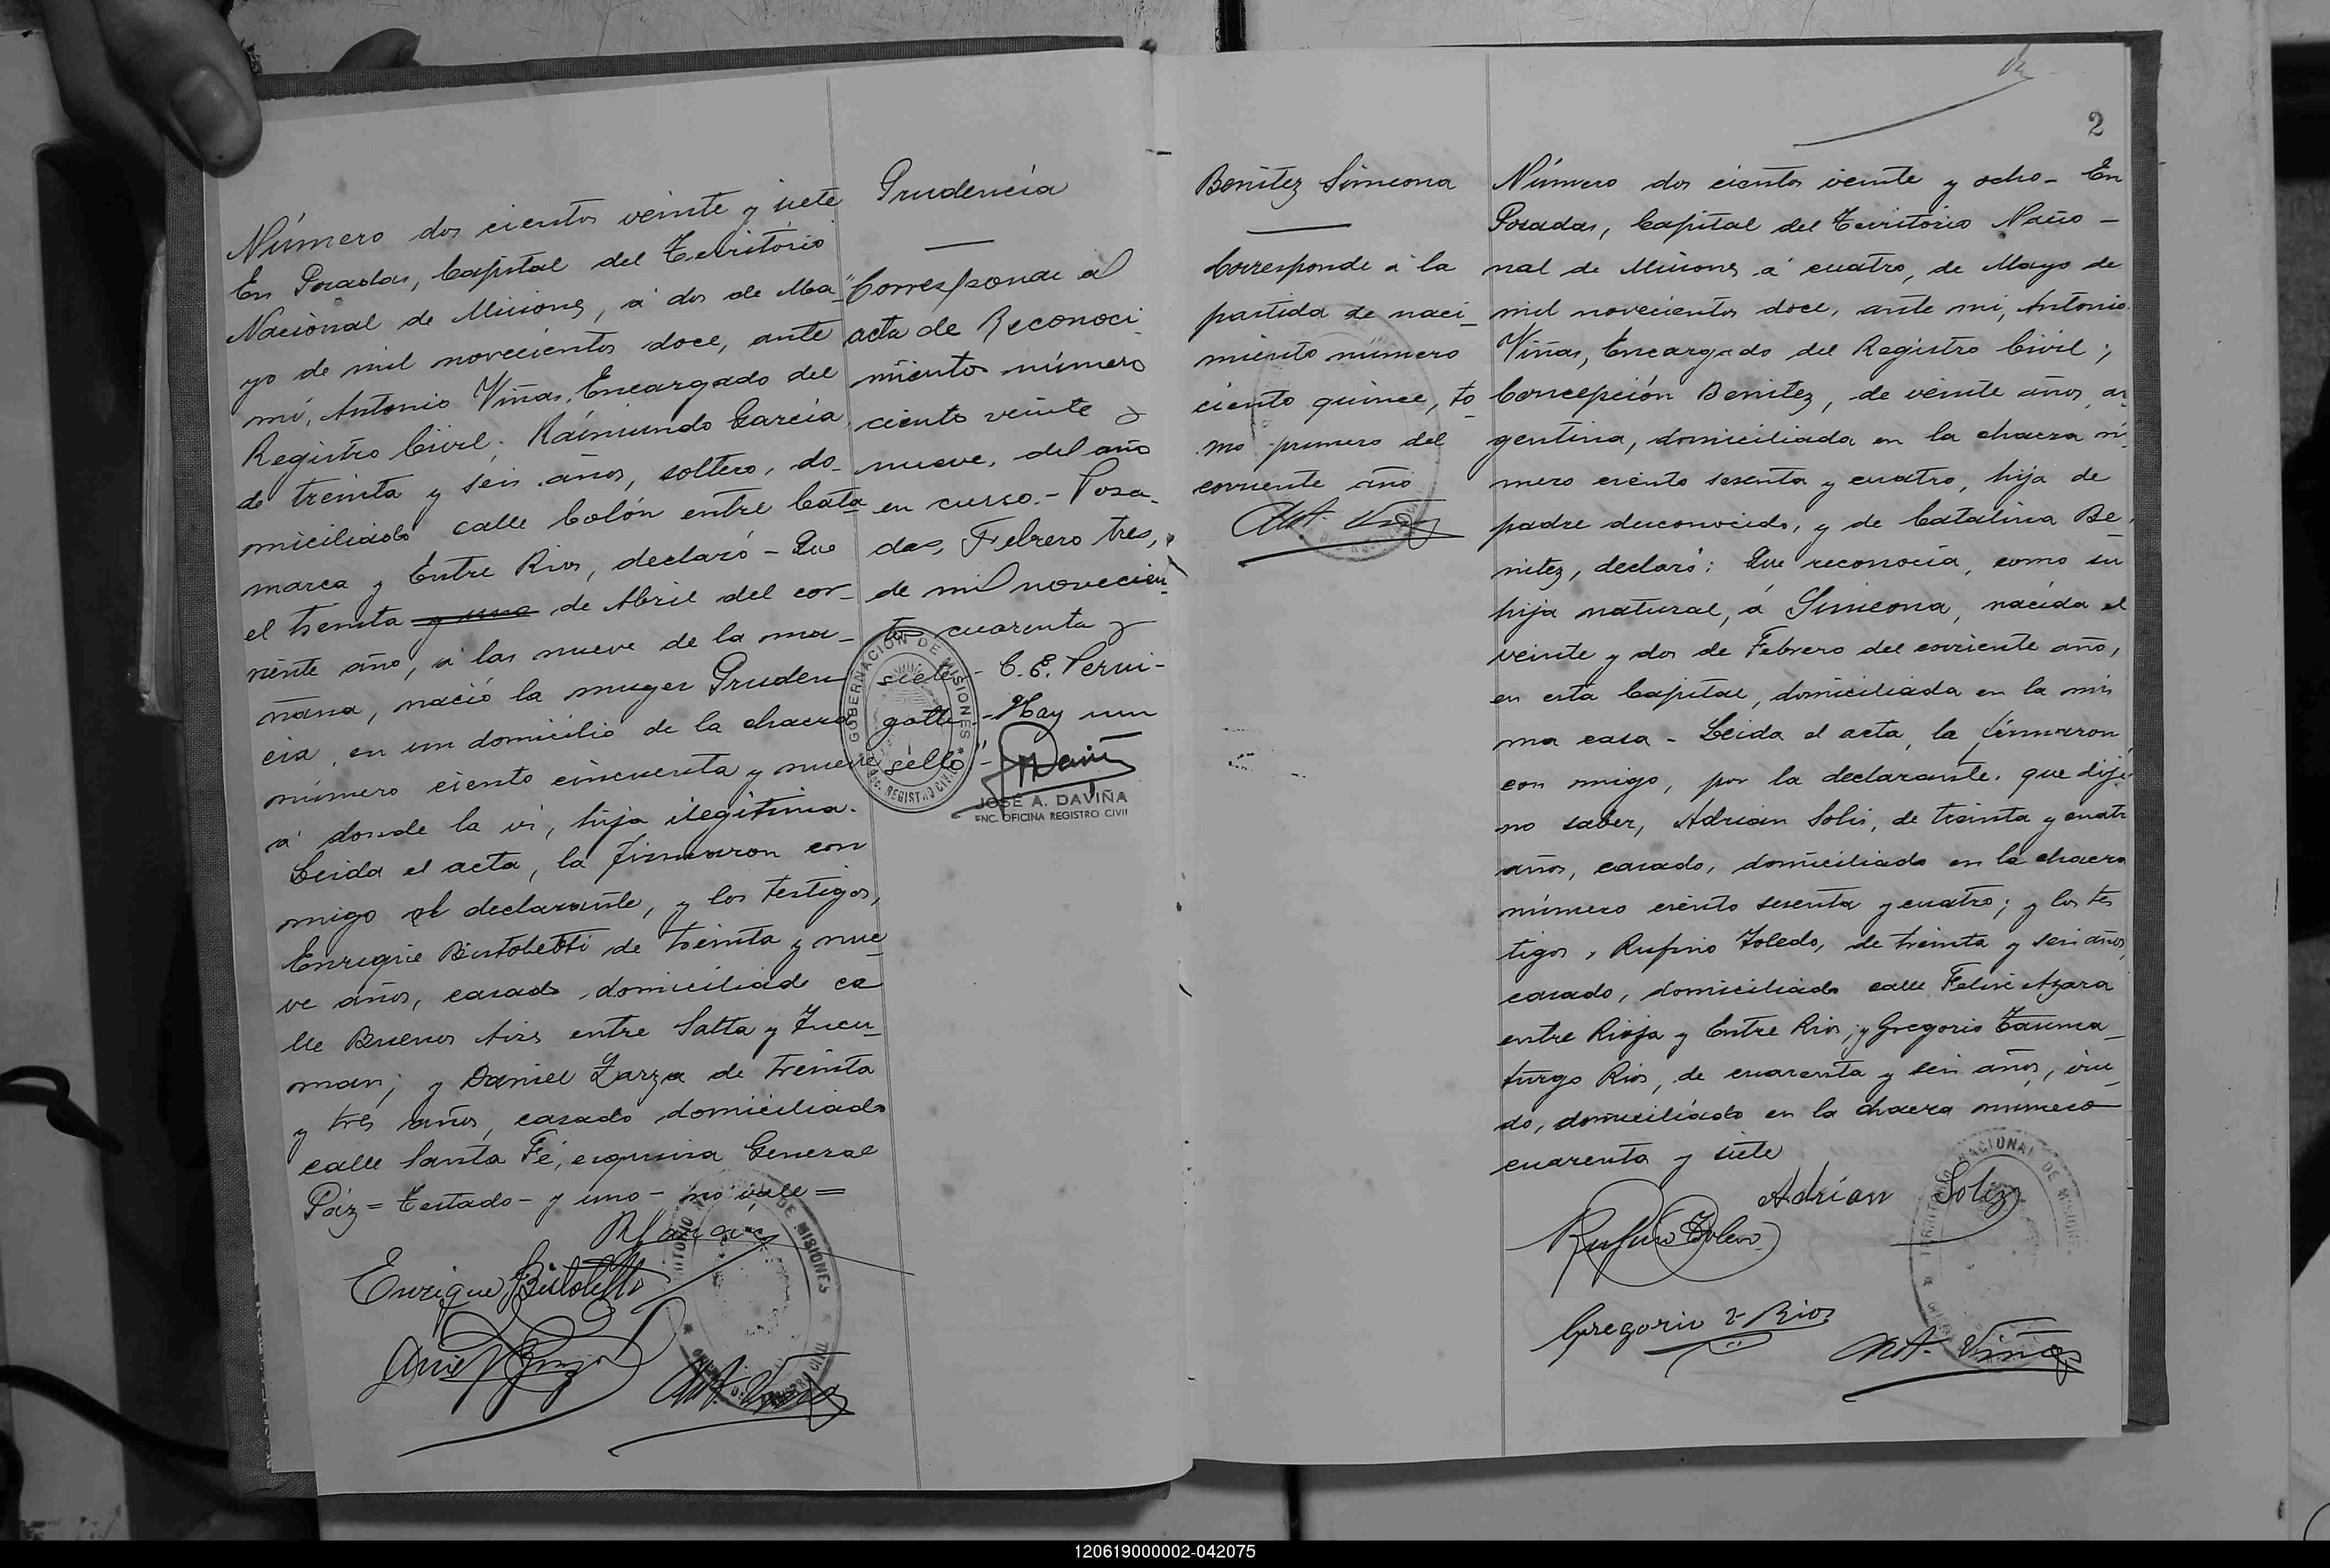 Número dos cientos veinte y siete
En Posadas, Capital del Territorio
Nacional de Misiones, á dos de Ma-
yo de mil novecientos doce, ante
mí, Antonio Viñas, Encargado del
Registro Civil; Raimundo Garcia,
de treinta y seis años, soltero, do-
miciliado calle Colón entre Cata
marca y Entre Rios, declaró - Que
el treinta y uno de Abril del cor-
riente año, á las nueve de la ma-
ñana, nació la muger Pruden
cia, en un domicilio de la chacra
número ciento cincuenta y nueve
á donde la vi, hija ilegitima.
Leida el acta, la firmaron con
migo el declarante, y los testigos,
Enrique Bistoletti de treinta y nue
ve años, casado, domiciliado ca
lle Buenos Aires entre Salta y Tucu-
man; y Daniel Zarza de treinta
y tres años, casado domiciliado
calle Santa Fé, esquina General
Páz = Testado - y uno - no vale =
R Garcia
Enrique Bistoletti
Ant. Viñas
Prudencia
"Corresponde al
acta de Reconoci
miento número
ciento veinte y
nueve, del año
en curso. - Posa-
das, Febrero tres,
de mil novecien
tos cuarenta y
siete - C. E. Perui-
gotti - Hay un
sello"-
GOBERNACIÓN DE MISIONES
REGISTRO CIVIL
JOSÉ A. DAVIÑA
ENC. OFICINA REGISTRO CIVIL
DE MISIONES
2
Benitez Simeona
Corresponde á la
partida de naci-
miento número
ciento quince, to
mo primero del
corriente año
Ant. Viñas
Número dos cientos veinte y ocho - En
Posadas, Capital del Territorio Nacio-
nal de Misiones á cuatro, de Mayo de
mil novecientos doce, ante mi, Antonio
Viñas, Encargado del Registro Civil;
Concepción Benitez, de veinte años, ar
gentina, domiciliada en la chacra nú
mero ciento sesenta y cuatro, hija de
padre desconocido, y de Catalina Be
nitez, declaró: Que reconocía, como su
hija natural, á Simeona, nacida el
veinte y dos de Febrero del corriente año,
en esta Capital, domiciliada en la mis
ma casa - Leida el acta, la firmaron
con migo, por la declarante, que dijo
no saber, Adrian Solis, de treinta y cuatro
años, casado, domiciliado en la chacra
número ciento sesenta y cuatro; y los tes
tigos, Rufino Toledo, de treinta y seis años,
casado, domiciliado calle Felix Azara
entre Rioja y Entre Rios, y Gregorio Tauma-
turgo Rios, de cuarenta y seis años, viu-
do, domiciliado en la chacra numero
cuarenta y siete
Adrian Soliz
Rufino Toledo
Gregorio T. Rios
Ant. Viñas
TERRITORIO NACIONAL DE MISIONES
120619000002-042075